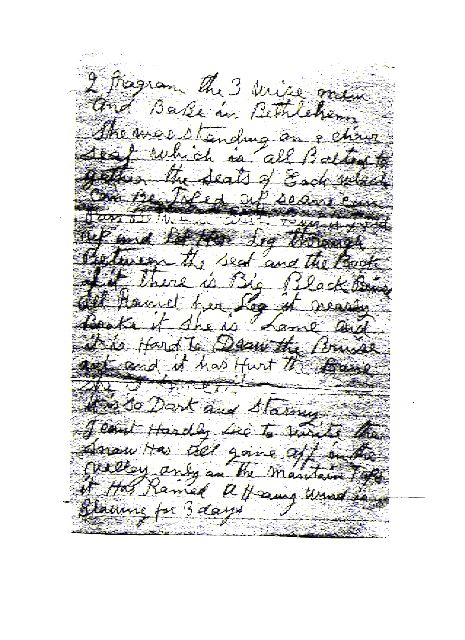 Program the 3 wise men
and Babe in Bethlehem
She was standing on a chair
seat which is all Bolted to
gether the seats of Each which
can Be
up and let Her Leg through
Between the seat and the Back
of it there is Big Black Bruise
all Around her Leg it nearly
Broke it She is Lame and
it is Hard to Draw the Bruise
out and it has Hurt the Bone
it is so Dark and Stormy
I cant Hardly see to write the
snow Has all gone off in the
valley only on the Mountain Tops
it Has Rained A Strong wind is
Blowing for 3 days